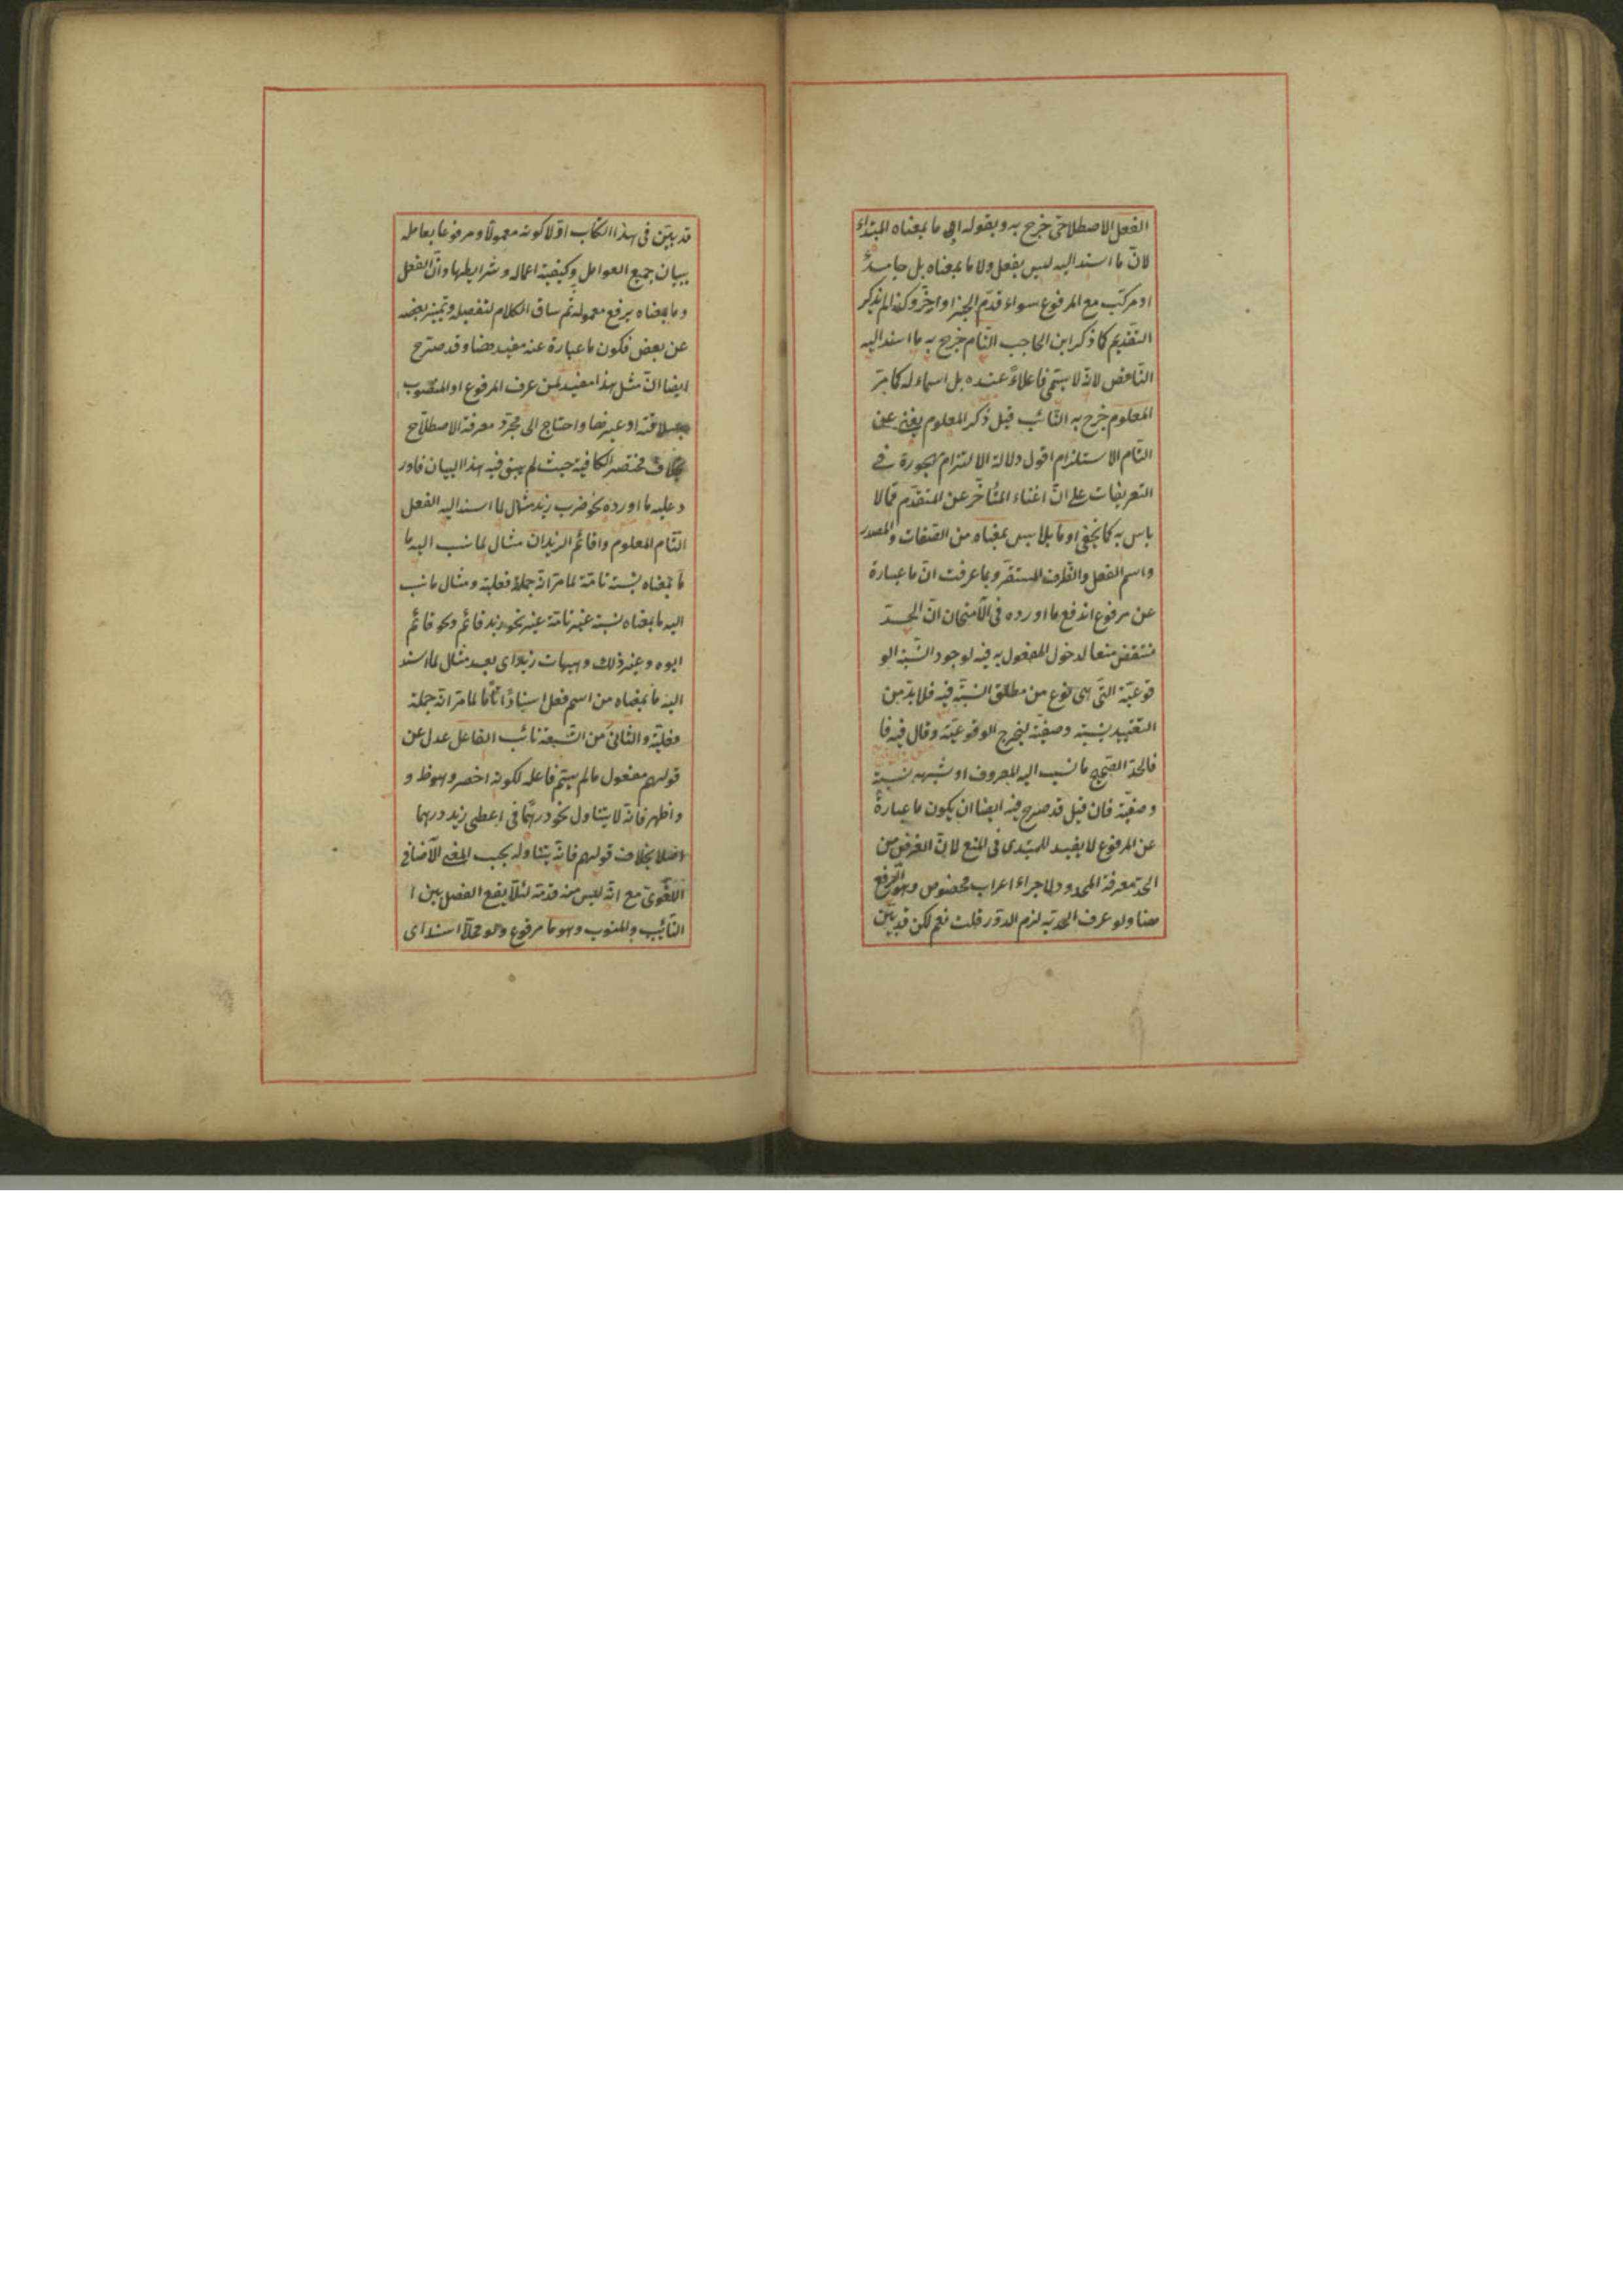 الفعل الاصطلاحى خرج به وبقوله او ما بمعناه المبتداء
لان ما اسند اليه ليس بفعل ولا ما بمعناه بل جامد
او مركب مع المرفوع سواء قدم الخبر او اخر وكذا لم يذكر
التقديم كما ذكر ابن الحاجب التام خرج به ما اسند اليه
الناقص لانه لا يسمى فاعلا عنده بل اسما له كما مر
المعلوم خرج به النائب قيل ذكر المعلوم يغنى عن
التام الاستلزام اقول دلالة الالتزام مهجورة فى
التعريفات على ان اغناء المتأخر عن المتقدم مما لا
باس به كما يخفى او ما بمعناه من الصفات والمصدر
واسم الفعل والظرف المستقر وبما عرفت ان ما عبارة
عن مرفوع اندفع ما اورده فى الامتحان ان الحد
منتقض منعا لدخول المفعول به فيه لوجود النسبة الو
قوعية التى هى نوع من مطلق النسبة فيه فلا بد من
التقييد بنسبة وصفية ليخرج الوقوعية وقال فيه فا
فالحد الصحيح ما نسب اليه المعروف او شبهه نسبة
وصفية فان قيل قد صرح فيه ايضا ان يكون ما عبارة
عن المرفوع لا يفيد للمبتدى فى المنع لان الغرض من
الحد معرفة المحدود لاجراء اعراب مخصوص وهو الرفع
هنا ولو عرف الحد به لزم الدور قلت نعم لكن قد بين
قد بين فى هذا الكتاب اولا كونه معمولا ومرفوعا بعامله
ببيان جميع العوامل وكيفية اعماله وشرايطها وان الفعل
وما بمعناه يرفع معموله ثم ساق الكلام لتفصيله وتميز بعضه
عن بعض فكون ما عبارة عنه مفيد هنا وقد صرح
ايضا ان مثل هذا مفيد لمن عرف المرفوع او المنصوب
او غيرها واحتاج الى مجرد معرفة الاصطلاح
بخلاف مختصر الكافية حيث لم يسبق فيه هذا البيان فاور
د عليه ما اورده نحو ضرب زيد مثال لما اسند اليه الفعل
التام المعلوم واقائم الزيدان مثال لما نسب اليه ما
ما بمعناه نسبة تامة لما مر انه جملة فعلية ومثال ما نسب
اليه ما بمعناه نسبة غير تامة غير نحو زيد قائم ونحو قائم
ابوه وغير ذلك وهيهات زيد اى بعد مثال لما اسند
اليه ما بمعناه من اسم فعل اسنادا تاما لما مر انه جملة
فعلية والثانى من التسعة نائب الفاعل عدل عن
قولهم مفعول ما لم يسم فاعله لكونه اخصر وهو ظ و
واظهر فانه لا يتناول نحو درهما فى اعطى زيد درهما
اصلا بخلاف قولهم فانه يتناوله بحسب المعنى الاضافى
اللغوى مع انه ليس منه قدمه لئلا يقع الفصل بين ا
النائب والمنوب وهو ما مرفوع ولو محلا اسند اى